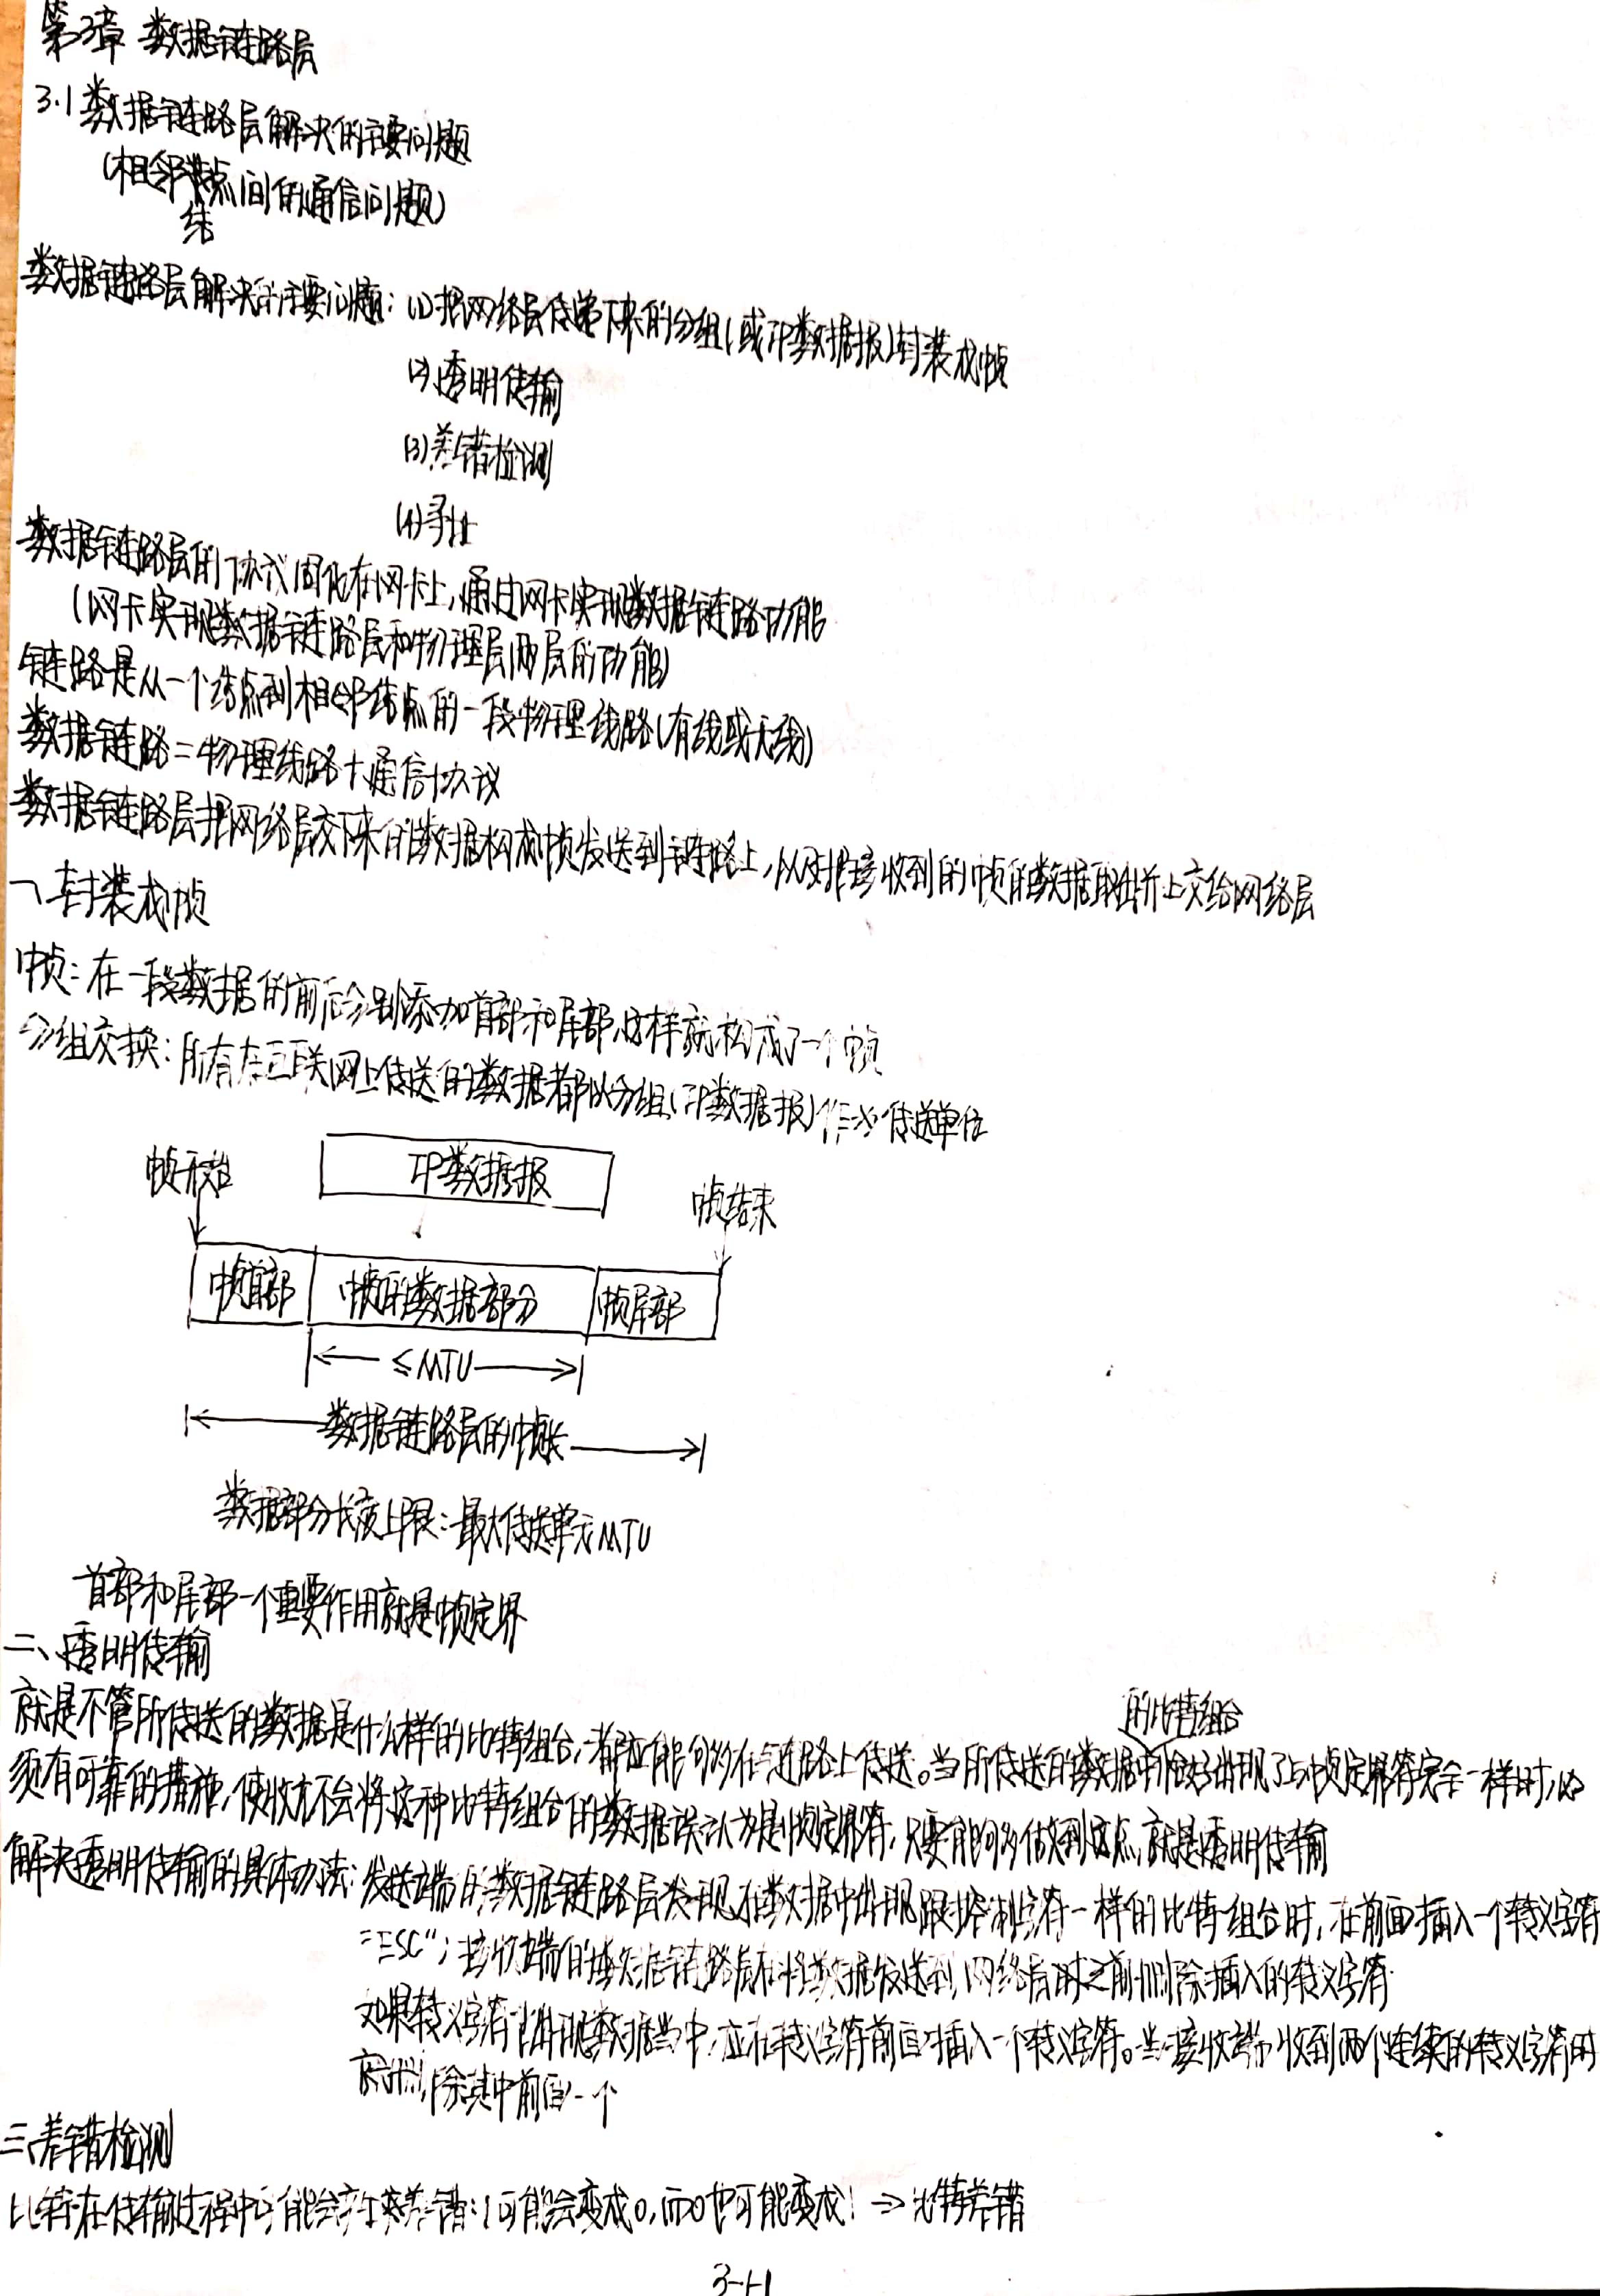 第3章 数据链路层
3.1 数据链路层解决的主要问题
(相邻结点间的通信问题)
数据链路层解决的主要问题: (1)把网络层传递下来的分组(或IP数据报)封装成帧
(2)透明传输
(3)差错检测
(4)寻址
数据链路层的协议固化在网卡上,通过网卡实现数据链路功能
(网卡实现数据链路层和物理层两层的功能)
链路是从一个结点到相邻结点的一段物理线路(有线或无线)
数据链路=物理线路+通信协议
数据链路层把网络层交下来的数据构成帧发送到链路上,以及把接收到的帧的数据取出并上交给网络层
一、封装成帧
帧:在一段数据的前后分别添加首部和尾部,这样就构成了一个帧
分组交换:所有在互联网上传送的数据都以分组(IP数据报)作为传送单位
IP数据报
帧开始
帧结束
帧首部 帧的数据部分 帧尾部
≤MTU
数据链路层的帧长
数据部分长度上限:最大传送单元MTU
首部和尾部一个重要作用就是帧定界
二、透明传输
就是不管所传送的数据是什么样的比特组合,都应能够在链路上传送。当所传送的数据中的比特组合恰好出现了与帧定界符完全一样时,必
须有可靠的措施,使收方不会将这种比特组合的数据误认为是帧定界符,只要能够做到这点,就是透明传输
解决透明传输的具体办法:发送端的数据链路层发现在数据中出现跟控制字符一样的比特组合时,在前面插入一个转义字符
"ESC";接收端的数据链路层在将数据发送到网络层时之前删除插入的转义字符
如果转义字符出现数据当中,应在转义字符前面插入一个转义字符。当接收端收到两个连续的转义字符时
就删除其中前面一个
三、差错检测
比特在传输过程中可能会产生差错:1可能会变成0,而0也可能变成1 → 比特差错
3-1-1